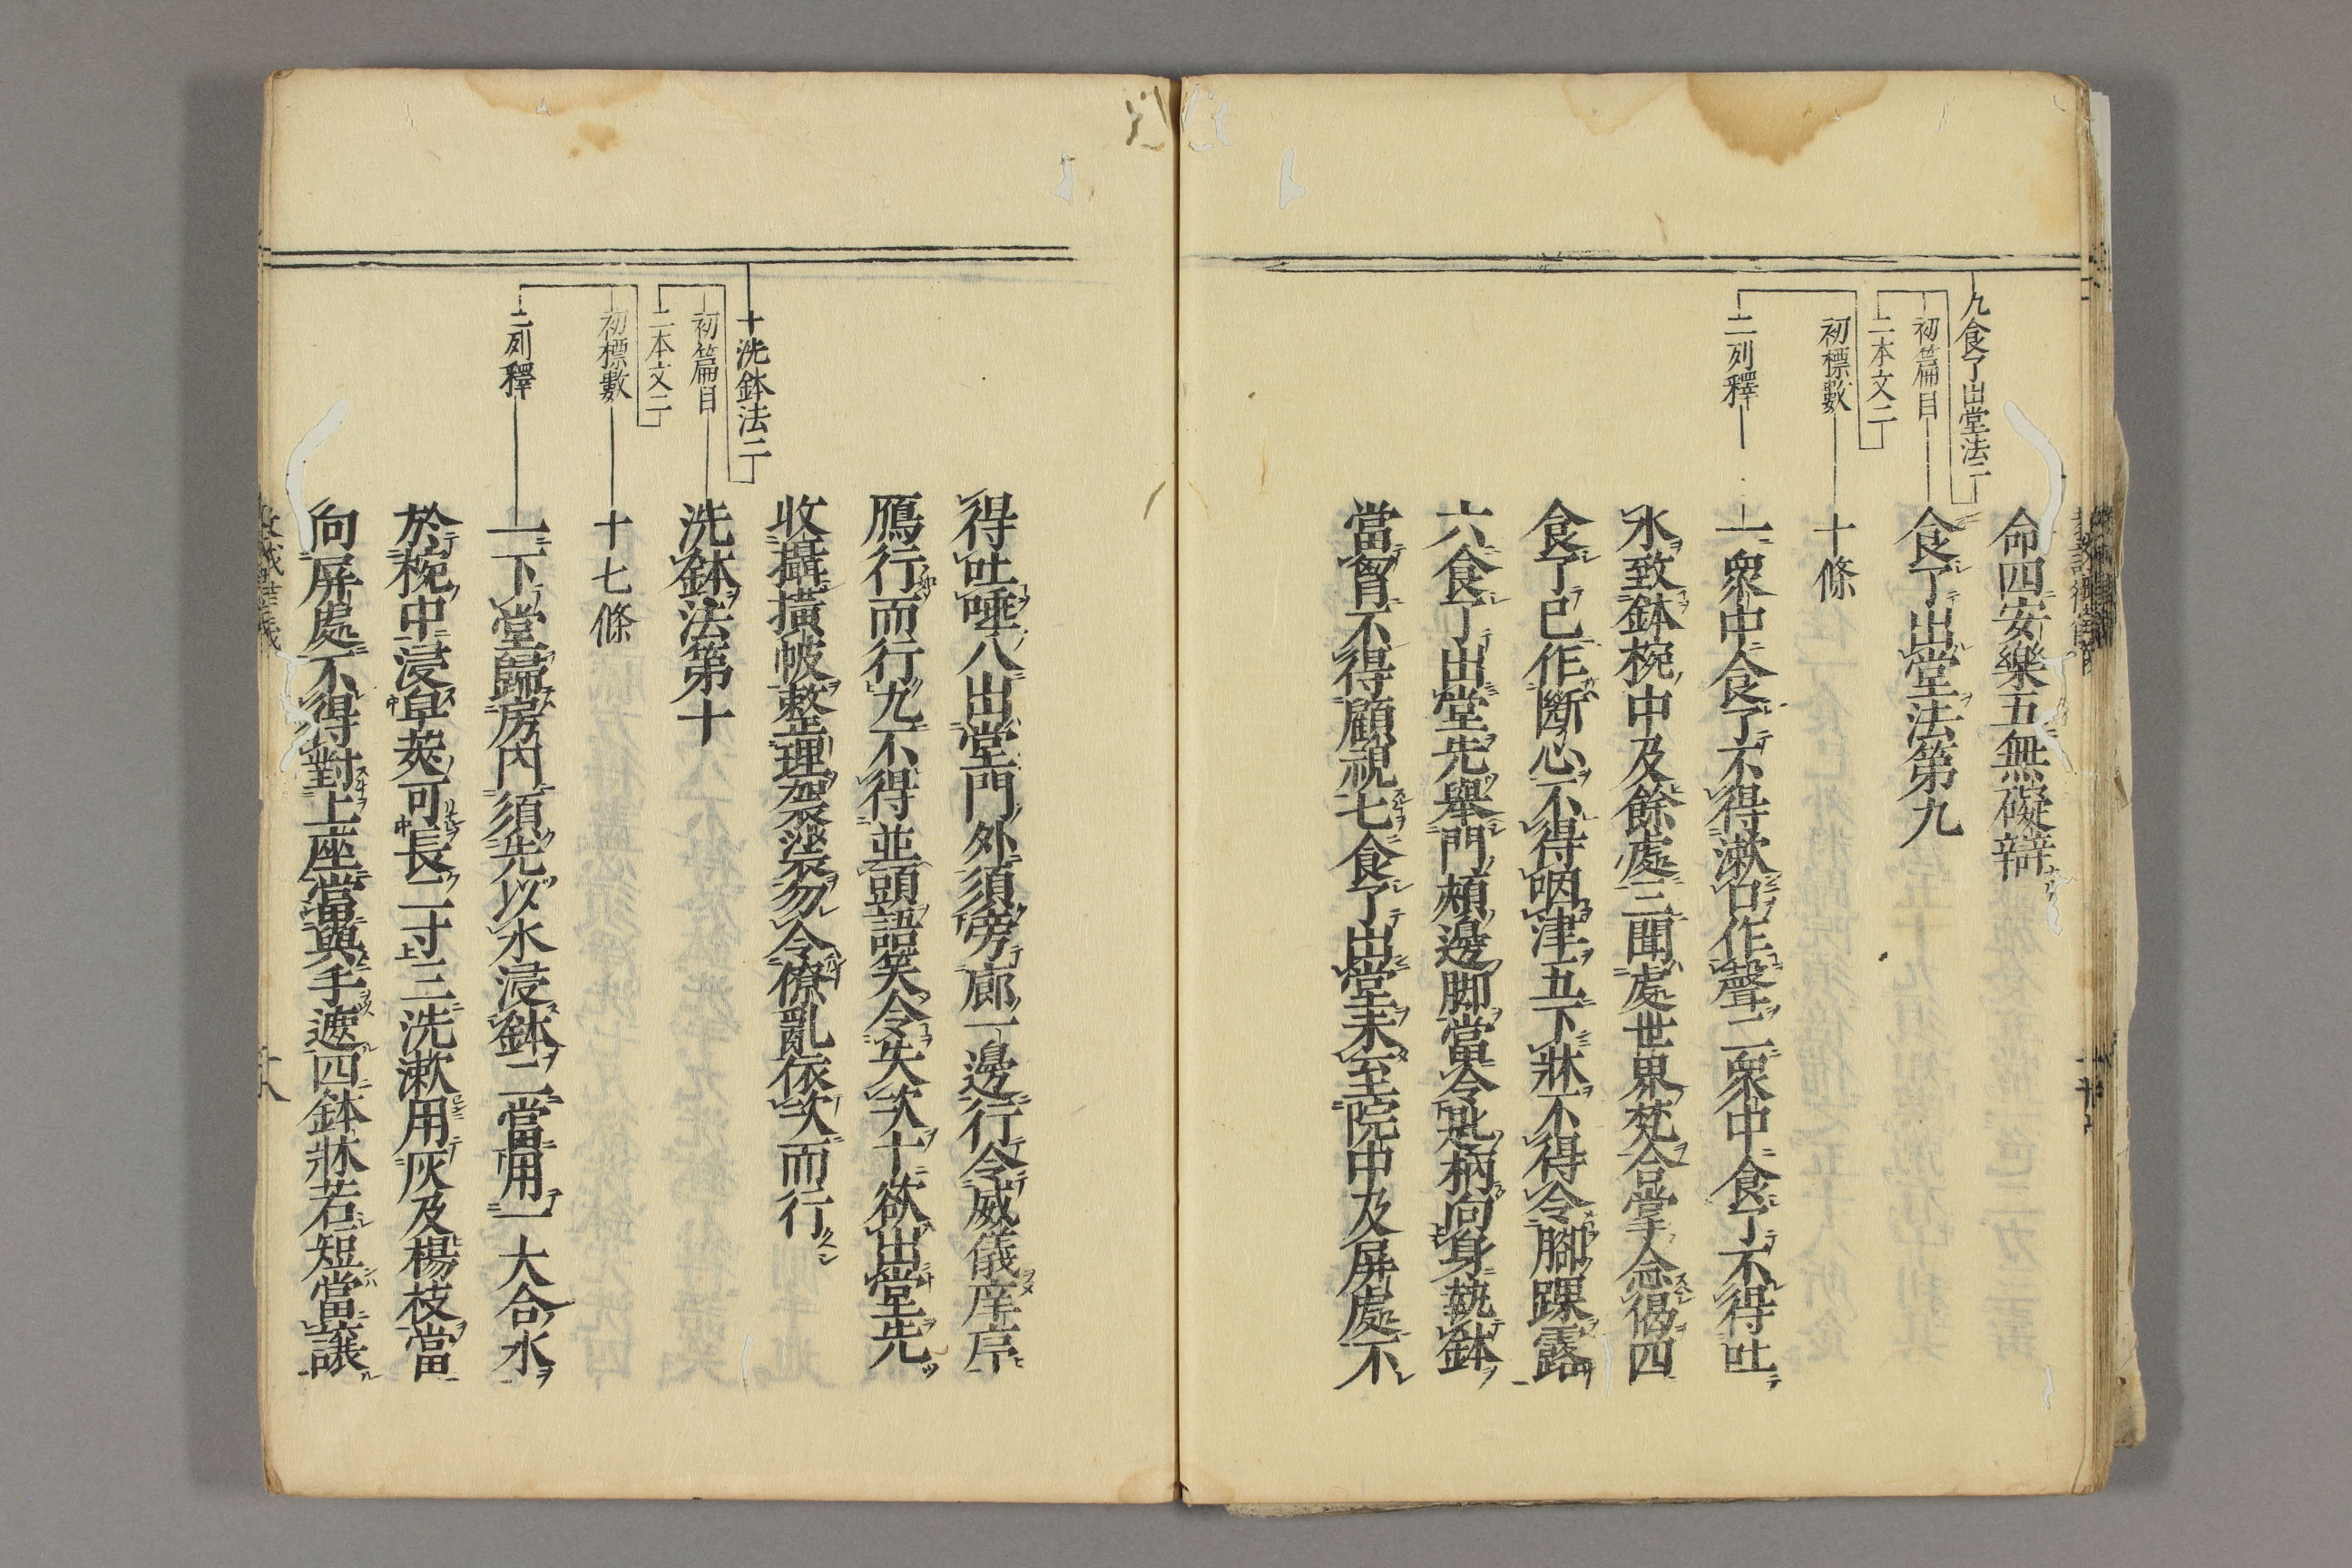 命四安樂五無礙辯
九食了出堂法二
初篇目
食了出堂法第九
二本文二
初標數
十條
二列釋
一衆中食了不得漱口作聲二衆中食了不得吐
水致鉢椀中及餘處三聞處世界梵合掌念偈四
食了已作斷心不得咽津五下牀不得令腳踝露
六食了出堂先舉門頰邊脚當令匙柄向身執鉢
當胷不得顧視七食了出堂未至院中及屏處不
得吐唾八出堂門外須旁廊一邊行令威儀庠序
鴈行而行九不得並頭語笑令失次十欲出堂先
收攝横帔整理袈裟勿令僚亂依次而行
十洗鉢法二
初篇目
洗鉢法第十
二本文二
初標數
十七條
二列釋
一下堂歸房内須先以水浸鉢二當用一大合水
於椀中浸皁莢可長二寸三洗漱用灰及楊枝當
向屏處不得對上座當與手遮四鉢牀若短當讓